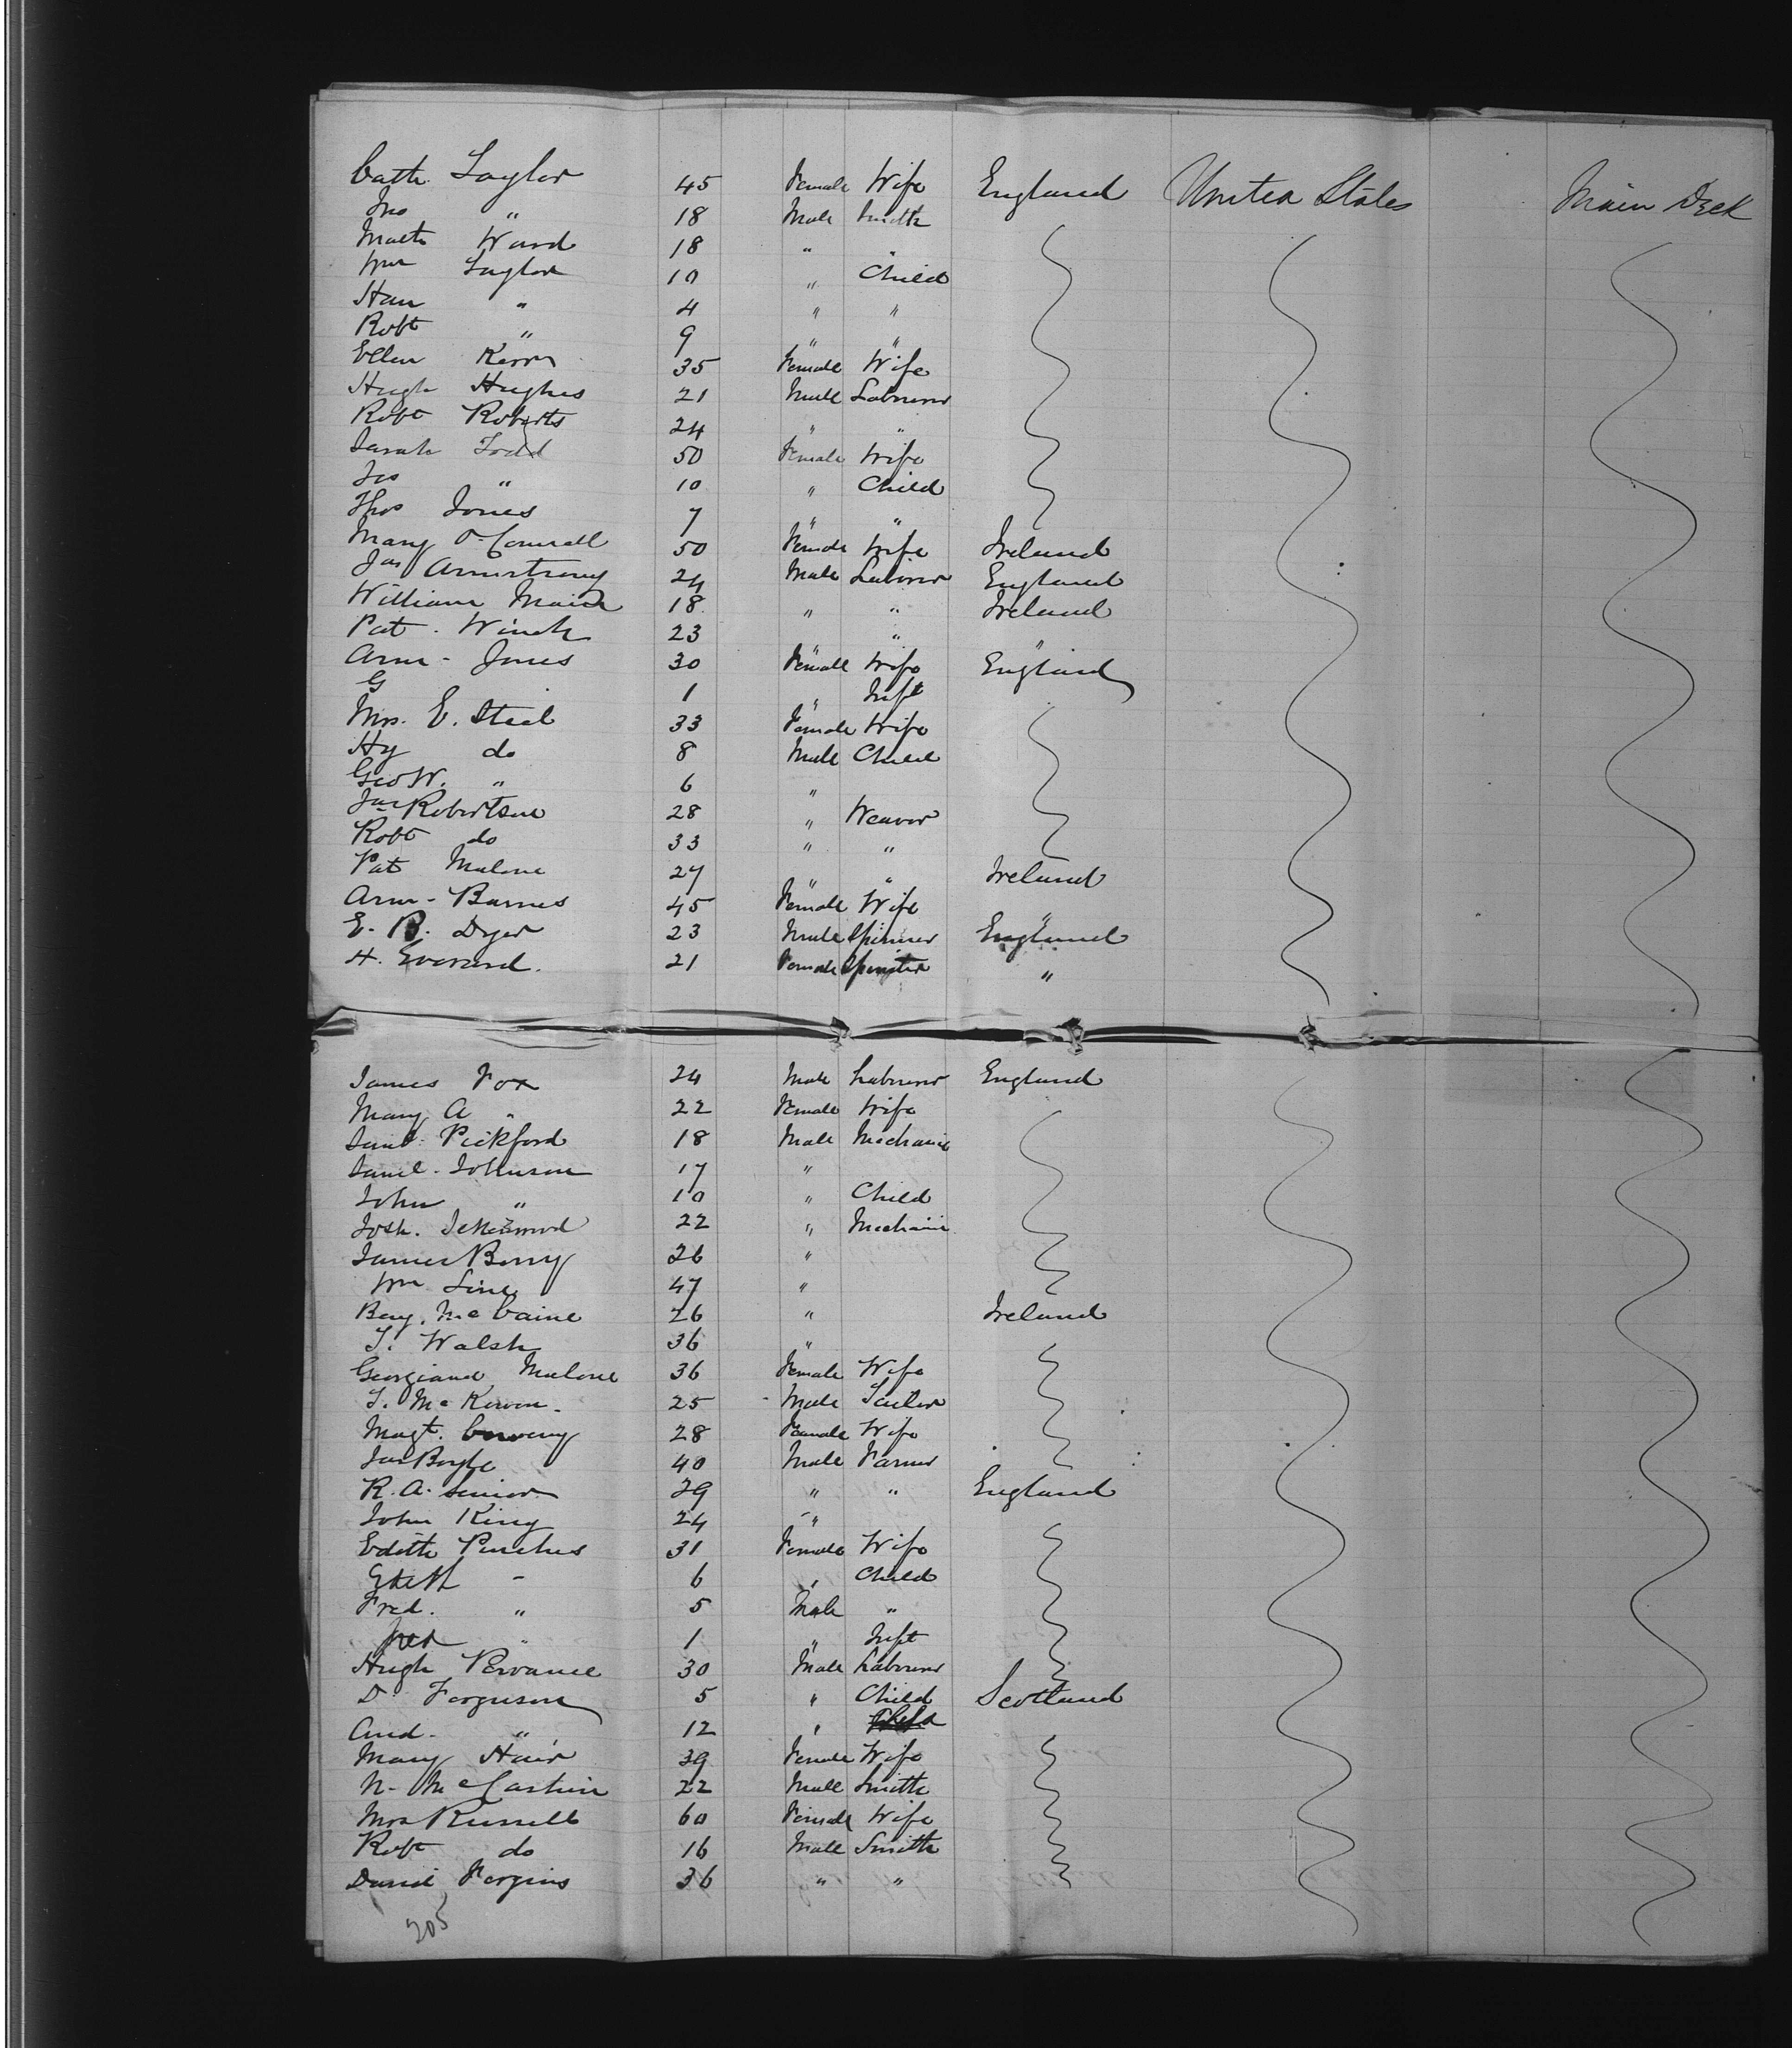 Cath Taylor 45 Female Wife England United States Main Deck
Jno " 18 Male Smith
Matt Ward 18 " "
Wm Taylor 10 " Child
Han " 4 " "
Robt " 9 " "
Ellen Kerr 35 Female Wife
Hugh Hughes 21 Male Labourer
Robt Roberts 24 " "
Sarah Todd 50 Female Wife
Jos " 10 " Child
Thos Jones 7 " "
Mary O'Connell 50 Female Wife Ireland
Jas Armstrong 24 Male Labourer England
William Main 18 " " Ireland
Pat. Winch 23 " "
Ann Jones 30 Female Wife England
G 1 " Inft
Mrs. E. Steel 33 Female Wife
Hy do 8 Male Child
Geo W. " 6 "
Jas Robertson 28 " Weaver
Robt do 33 " "
Pat Malone 27 " " Ireland
Ann Barnes 45 Female Wife "
E. B. Dyer 23 Male Spinner England
H. Everard. 21 Female Spinster "
James Fox 24 Male Labourer England
Mary A " 22 Female Wife
Saml. Pickford 18 Male Mechanic
Saml. Johnson 17 "
John " 10 " Child
Josh. 22 " Mechanic
James Berry 26 "
Wm Line 47 "
Benj. McCaine 26 " Ireland
T. Walsh 36 "
Georgiana Malone 36 Female Wife
T. McKeown 25 Male Tailor
Magt. 28 Female Wife
Jas Boyle 40 Male Farmer
R. A. Senior 29 " " England
John King 24 "
Edith Pinches 31 Female Wife
6 " Child
Fred. " 5 Male "
" 1 " Inft
Hugh Pervance 30 Male Labourer
D. Ferguson 5 " Child Scotland
And. " 12 "
Mary Hair 39 Female Wife
N. McCashin 22 Male Smith
Mrs Russell 60 Female Wife
Robt do 16 Male Smith
David Fergins 36 " "
205